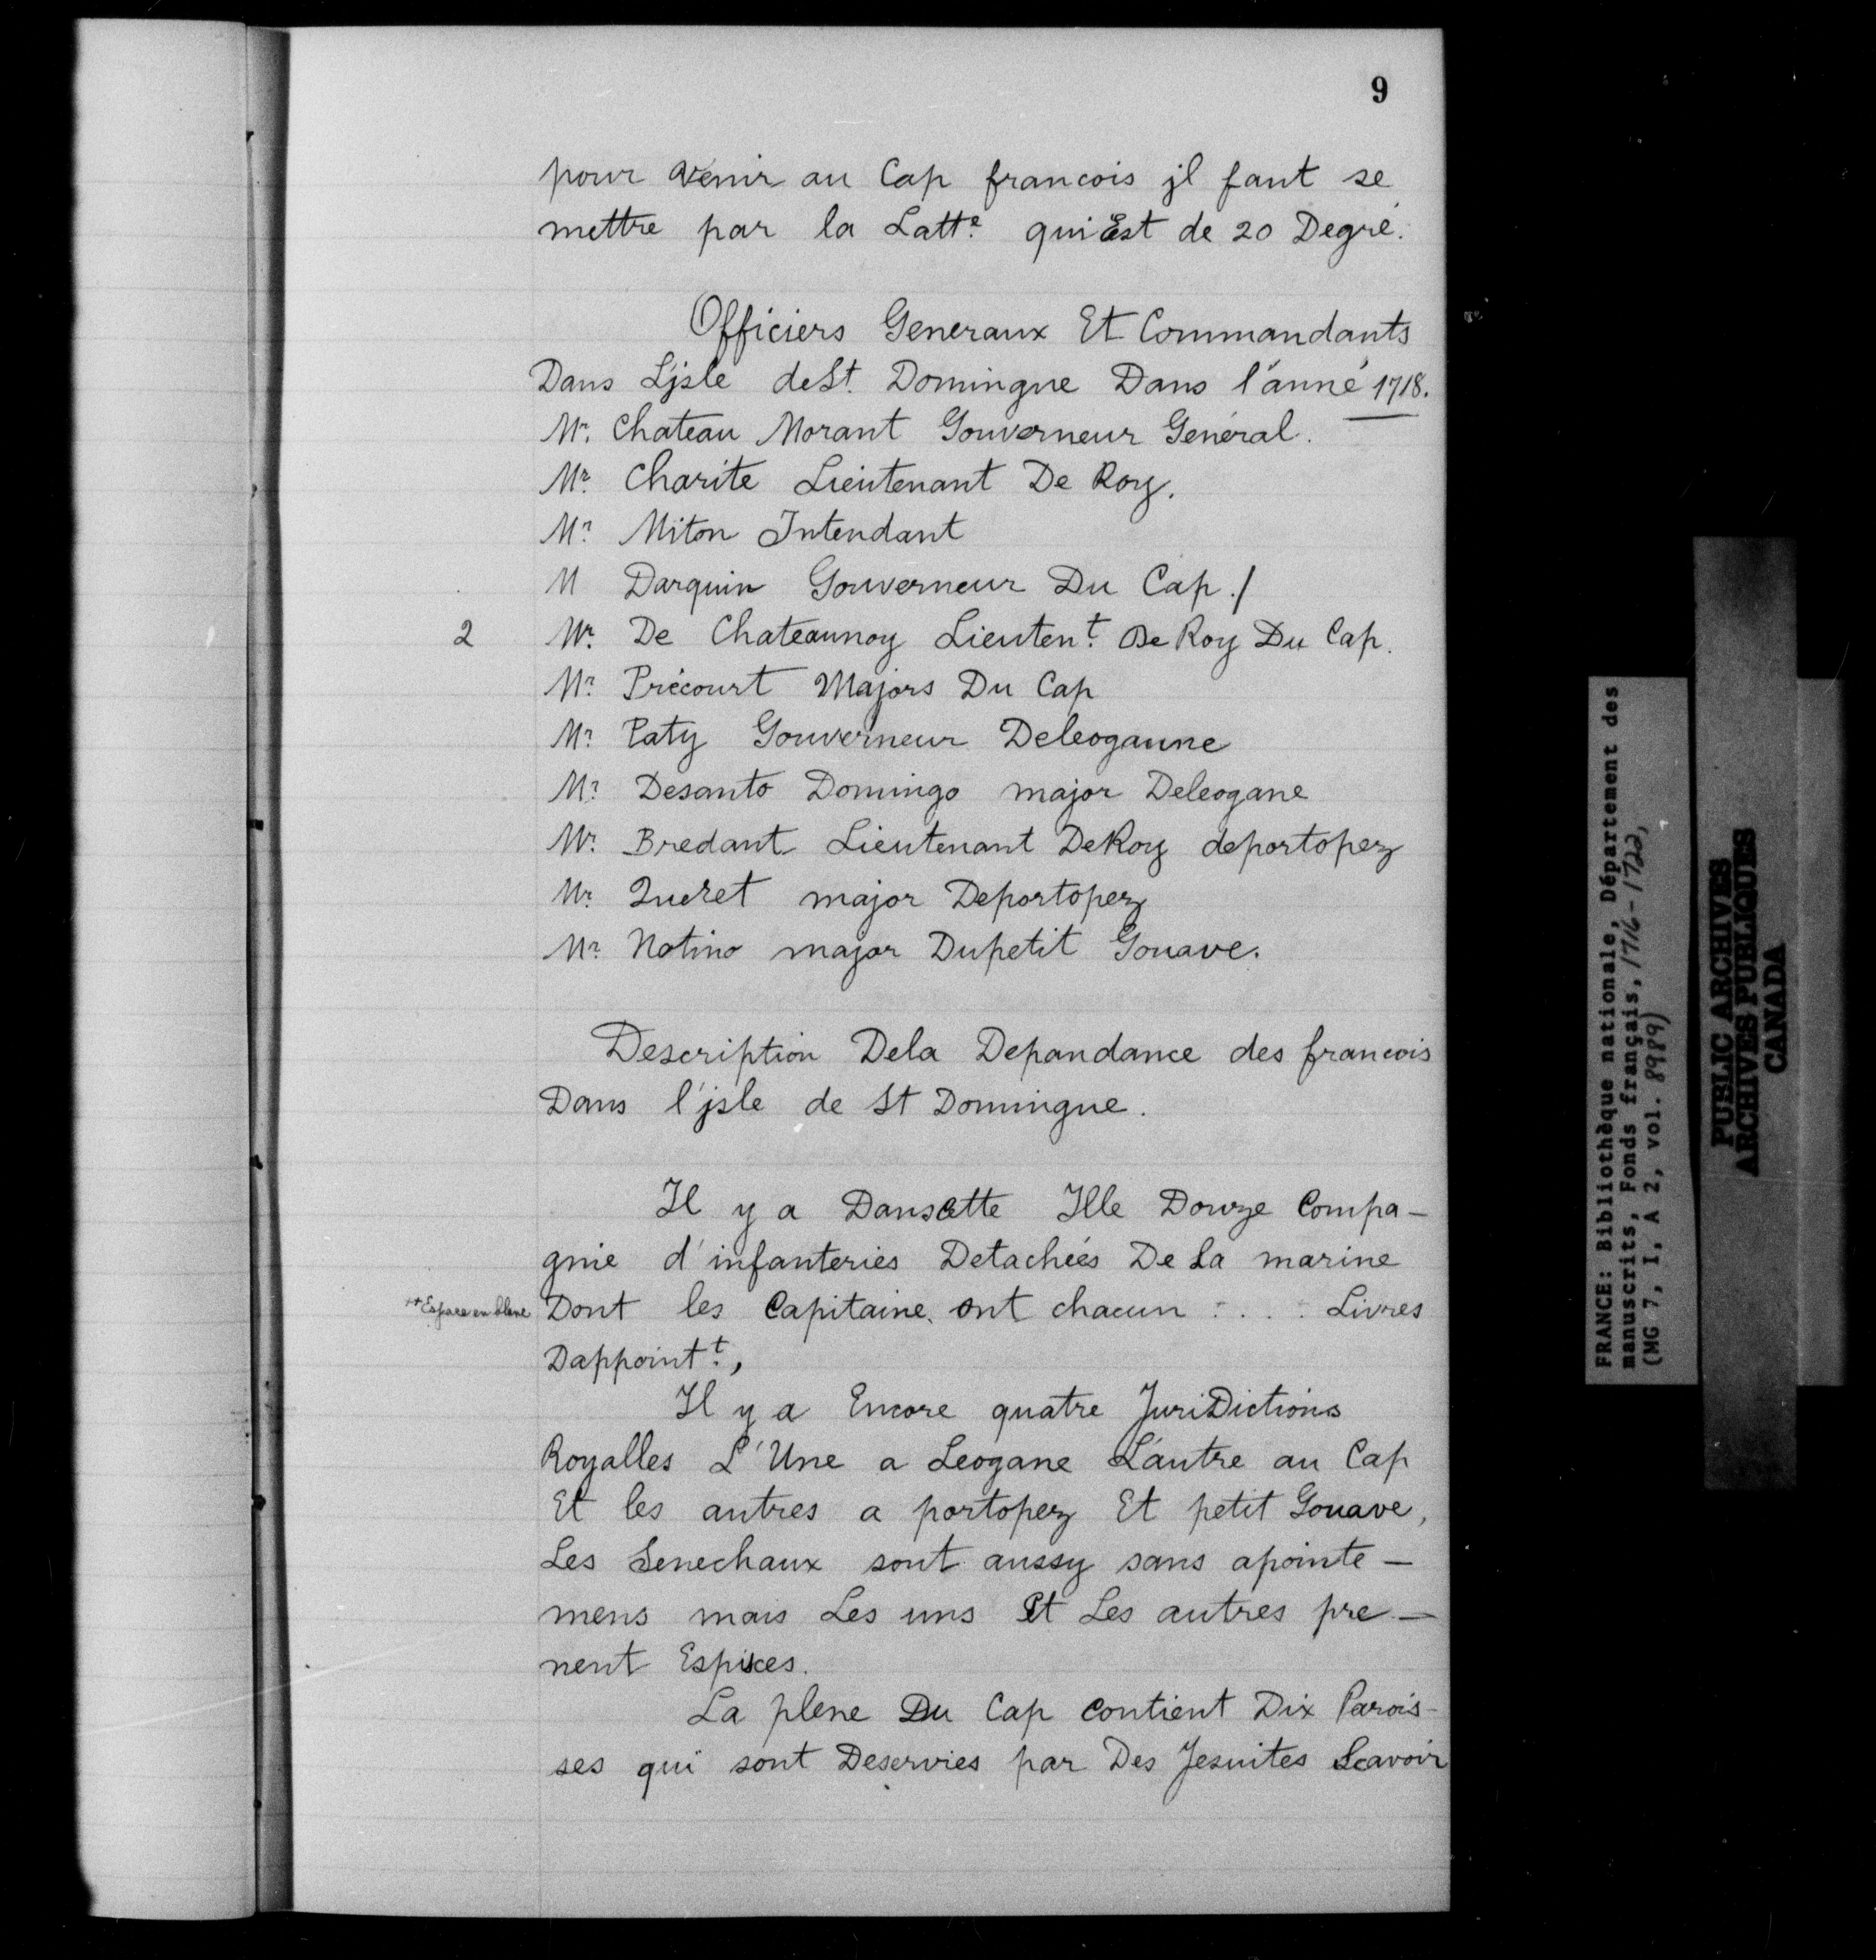 9
pour venir au Cap francois jl faut se
mettre par la Latt.e qui Est de 20 Degré.
Officiers Generaux Et Commandants
Dans L'jsle de St. Domingue Dans l'anné 1718.
Mr. Chateau Morant Gouverneur General.
Mr. Charite Lieutenant De Roy.
Mr. Miton Intendant
M Darquin Gouverneur Du Cap./
2 Mr. De Chateaunoy Lieuten.t De Roy Du Cap.
Mr. Précourt Majors Du Cap
Mr. Paty Gouverneur Deleoganne
Mr. Desanto Domingo major Deleogane
Mr. Bredant Lieutenant DeRoy deportopez
Mr. Queret major Deportopez
Mr. Notino major Dupetit Gouave.
Description Dela Depandance des francois
Dans l'jsle de St Domingue.
Il y a Dans cette Ille Douze Compa-
gnie d'infanteries Detachées De La marine
*+Espace en blanc Dont les Capitaine ont chacun . . . . Livres
Dappoint.t,
Il y a Encore quatre JuriDictions
Royalles L'Une a Leogane L'autre au Cap
Et les autres a portopez Et petit Gouave,
Les Senechaux sont aussy sans apointe-
mens mais Les uns Et Les autres pre-
nent Espices.
La plene Du Cap contient Dix Parois-
ses qui sont Deservies par Des Jesuites Scavoir
FRANCE: Bibliothèque nationale, Département des
manuscrits, Fonds français, 1716-1722,
(MG 7, I, A 2, vol. 8989)
PUBLIC ARCHIVES
ARCHIVES PUBLIQUES
CANADA